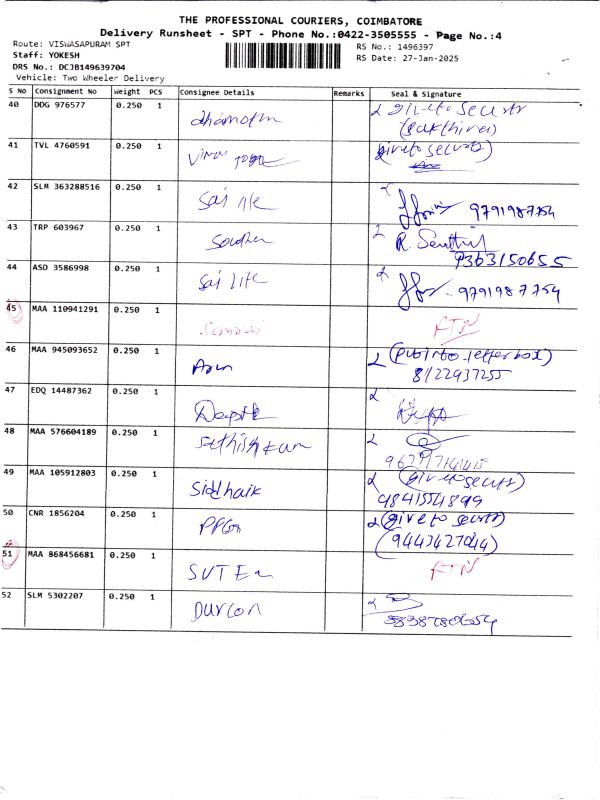 THE PROFESSIONAL COURIERS, COIMBATORE
Delivery Runsheet - SPT - Phone No.:0422-3505555 - Page No.:4
Route: VISWASAPURAM SPT
RS No.: 1496397
Staff: YOKESH
RS Date: 27-Jan-2025
DRS No.: DCJB149639704
Vehicle: Two Wheeler Delivery
S No Consignment No Weight PCS Consignee Details Remarks Seal & Signature
40 DDG 976577 0.250 1 give to securt
41 TVL 4760591 0.250 1 (give to securt)
42 SLM 363288516 0.250 1 Sai life 9791987754
43 TRP 603967 0.250 1 R. Senthil
9363150655
44 ASD 3586998 0.250 1 Sai life 9791987754
45 MAA 110941291 0.250 1 FTN
46 MAA 945093652 0.250 1 Arun (put into letter box)
8122937255
47 EDQ 14487362 0.250 1 Deepik
48 MAA 576604189 0.250 1 Sathishkum
49 MAA 105912803 0.250 1 Siddhaik (give to securt)
9841554899
50 CNR 1856204 0.250 1 (give to securt)
(9443427044)
51 MAA 868456681 0.250 1 FTN
52 SLM 5302207 0.250 1 Durcon